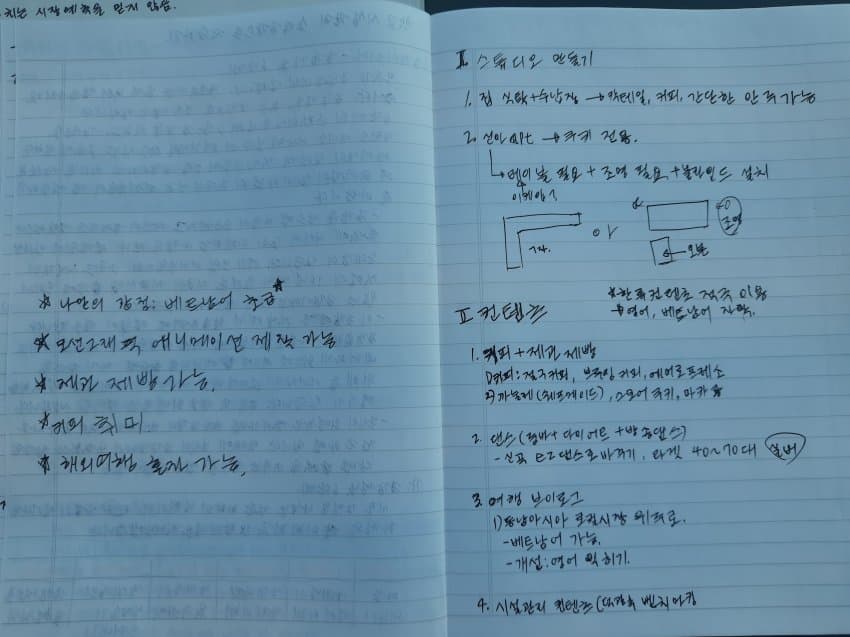 치는 시장예측을 믿지 않음.
☆ 나만의 강점: 베트남어 초급☆
☆ 모션그래픽 애니메이션 제작 가능
☆ 제과 제빵 가능.
☆ 커피 취미
☆ 해외여행 혼자 가능.
Ⅱ. 스튜디오 만들기
1. 집 식탁+수납장 → 칵테일, 커피, 간단한 안주 가능
2. → 쿠키 전용.
→ 테이블 필요 + 조명 필요 + 블라인드 설치
이케아
ㄱ자.
or
조명
오븐
☆한류컨텐츠 적극 이용
영어, 베트남어 자막.
Ⅱ 컨텐츠
1. 커피 + 제과 제빵
1)커피: 브루잉커피, 에어로프레소
2) 까눌레 스모어 쿠키, 마카롱
2. 댄스 (줌바 + 다이어트 + 방송댄스)
- 신곡 EZ댄스로 바꾸기, 타겟 40~70대 실버
3. 여행 브이로그
1) 동남아시아 로컬시장 위주로.
- 베트남어 가능.
- 개선: 영어 익히기.
4. 시설관리 컨텐츠 벤치마킹